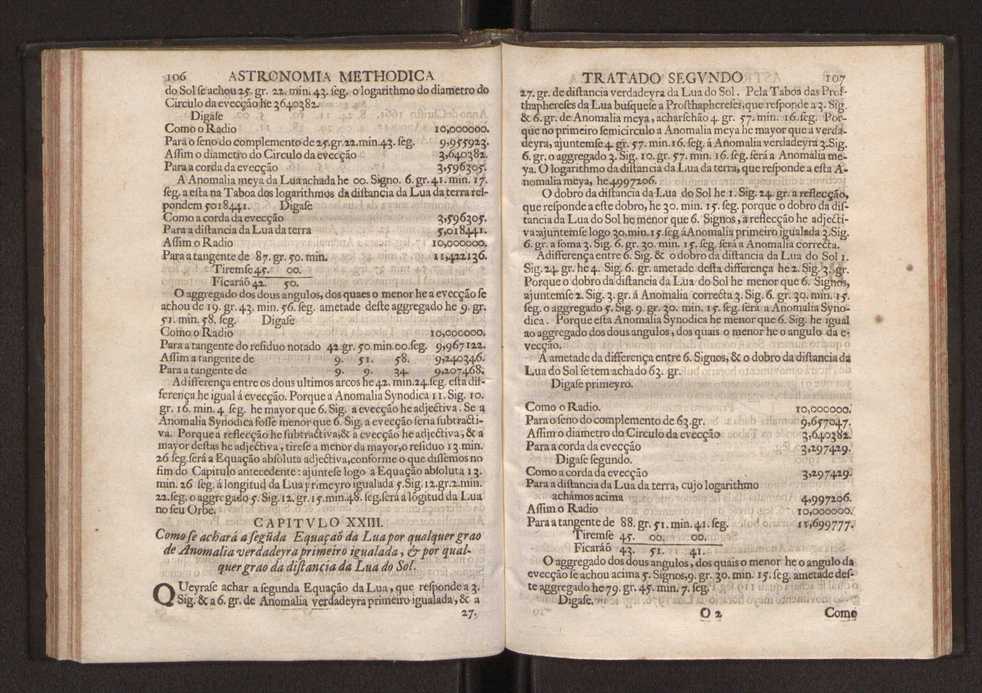 106 ASTRONOMIA METHODICA
do Sol se achou 25. gr. 22. min. 43. seg. o logarithmo do diametro do
Circulo da evecção he 3640382.
Digase
Como o Radio 10,000000.
Para o seno do complemento de 25.gr.22.min.43. seg. 9,955923.
Assim o diametro do Circulo da evecção 3,640382.
Para a corda da evecção 3,596305.
A Anomalia meya da Lua achada he 00. Signo. 6. gr. 41. min. 17.
seg. a esta na Taboa dos logarithmos da distancia da Lua da terra res-
pondem 5018441. Digase
Como a corda da evecção 3,596305.
Para a distancia da Lua da terra 5,018441.
Assim o Radio 10,000000.
Para a tangente de 87. gr. 50. min. 11,422136.
Tiremse 45. 00.
Ficaráõ 42. 50.
O aggregado dos dous angulos, dos quaes o menor he a evecção se
achou de 19. gr. 43. min. 56. seg. ametade deste aggregado he 9. gr.
51. min. 58. seg. Digase
Como o Radio 10,000000.
Para a tangente do residuo notado 42. gr. 50. min. 00. seg. 9,967122.
Assim a tangente de 9. 51. 58. 9,240346.
Para a tangente de 9. 9. 34. 9,207468.
A differença entre os dous ultimos arcos he 42. min. 24. seg. esta dif-
ferença he igual á evecção. Porque a Anomalia Synodica 11. Sig. 10.
gr. 16. min. 4. seg. he mayor que 6. Sig. a evecção he adjectiva. Se a
Anomalia Synodica fosse menor que 6. Sig. a evecção seria subtracti-
va. Porque a reflecção he subtractiva, & a evecção he adjectiva, & a
mayor destas he adjectiva, tirese a menor da mayor, o residuo 13. min.
26 seg. será a Equação absoluta adjectiva, conforme o que dissemos no
fim do Capitulo antecedente: ajuntese logo a Equação absoluta 13.
min. 26 seg. á longitud da Lua primeyro igualada 5. Sig. 12. gr. 2. min.
22. seg. o aggregado 5. Sig. 12. gr. 15. min. 48. seg. será a lõgitud da Lua
no seu Orbe.
CAPITVLO XXIII.
Como se achará a segũda Equaçaõ da Lua por qualquer grao
de Anomalia verdadeyra primeiro igualada, & por qual-
quer grao da distancia da Lua do Sol.
QUeyrase achar a segunda Equação da Lua, que responde a 3.
Sig. & a 6. gr. de Anomalia verdadeyra primeiro igualada, & a
27.
TRATADO SEGVNDO 107
27. gr. de distancia verdadeyra da Lua do Sol. Pela Taboa das Pros-
thaphereses da Lua busquese a Prosthaphereses, que responde a 3. Sig.
& 6. gr. de Anomalia meya, acharsehão 4. gr. 57. min. 16. seg. Por-
que no primeiro semicirculo a Anomalia meya he mayor que a verda-
deyra, ajuntemse 4. gr. 57. min. 16. seg. á Anomalia verdadeyra 3. Sig.
6. gr. o aggregado 3. Sig. 10. gr. 57. min. 16. seg. será a Anomalia me-
ya. O logarithmo da distancia da Lua da terra, que responde a esta A-
nomalia meya, he 4997206.
O dobro da distancia da Lua do Sol he 1. Sig. 24. gr. a reflecção,
que responde a este dobro, he 30. min. 15. seg. porque o dobro da dis-
tancia da Lua do Sol he menor que 6. Signos, a reflecção he adjecti-
va: ajuntemse logo 30. min. 15. seg. á Anomalia primeiro igualada 3. Sig.
6. gr. a soma 3. Sig. 6. gr. 30. min. 15. seg. será a Anomalia correcta.
A differença entre 6. Sig. & o dobro da distancia da Lua do Sol 1.
Sig. 24. gr. he 4. Sig. 6. gr. ametade desta differença he 2. Sig. 3. gr.
Porque o dobro da distancia da Lua do Sol he menor que 6. Signos,
ajuntemse 2. Sig. 3. gr. á Anomalia correcta 3. Sig. 6. gr. 30. min. 15.
seg. o aggregado 5. Sig. 9. gr. 30. min. 15. seg. será a Anomalia Syno-
dica. Porque esta Anomalia Synodica he menor que 6. Sig. he igual
ao aggregado dos dous angulos, dos quais o menor he o angulo da e-
vecção.
A ametade da differença entre 6. Signos, & o dobro da distancia da
Lua do Sol se tem achado 63. gr.
Digase primeyro.
Como o Radio. 10,000000.
Para o seno do complemento de 63. gr. 9,657047.
Assim o diametro do Circulo da evecção 3,640382.
Para a corda da evecção 3,297429.
Digase segundo.
Como a corda da evecção 3,297429.
Para a distancia da Lua da terra, cujo logarithmo
achámos acima 4,997206.
Assim o Radio 10,000000.
Para a tangente de 88. gr. 51. min. 41. seg. 11,699777.
Tiremse 45. 00. 00.
Ficaráõ 43. 51. 41.
O aggregado dos dous angulos, dos quais o menor he o angulo da
evecção se achou acima 5. Signos, 9. gr. 30. min. 15. seg. ametade des-
te aggregado he 79. gr. 45. min. 7. seg.
Digase.
O 2 Como